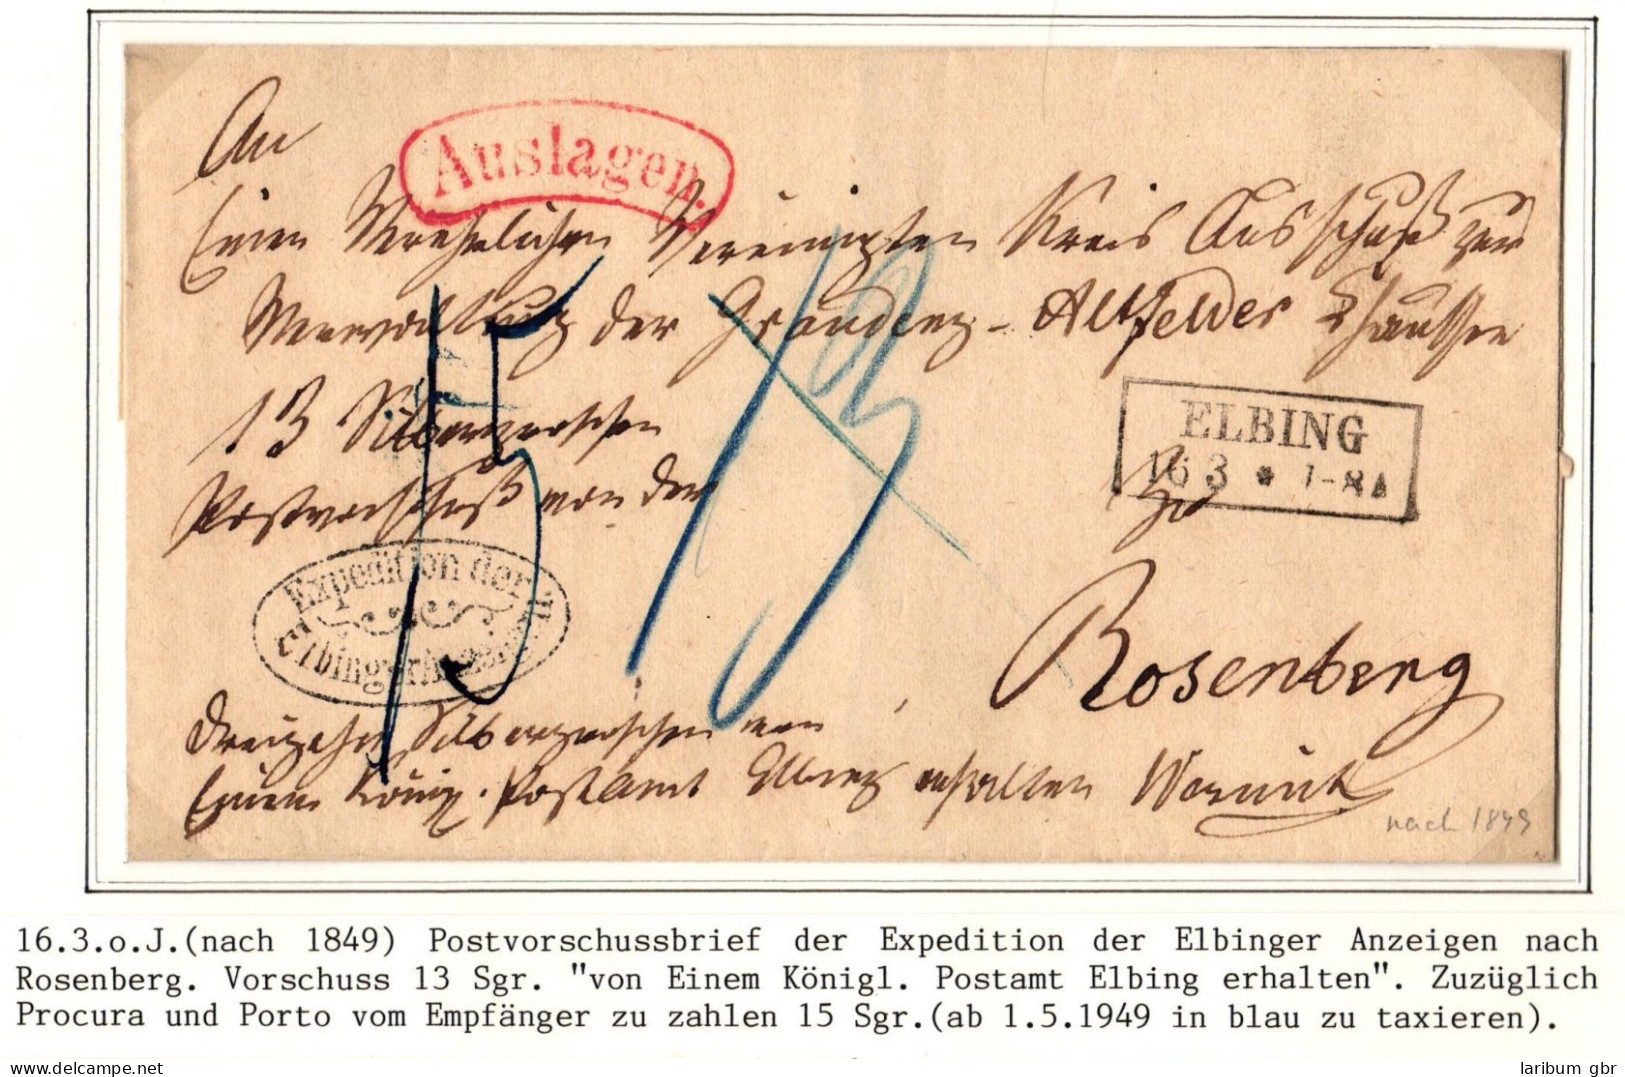 An
Auslagen.
Einen Verehrlichen Vereinigten Kreis Ausschuß zur
Verwaltung der Graudenz-Altfelder Chaussee
13 Silbergroschen
Postvorschuß von der
ELBING
16 3 * 7-8A
zu
15
13
Expedition der
Elbinger Anzeigen
Rosenberg
Dreizehn Silbergroschen von
Einem Königl. Postamt Elbing erhalten
nach 1849
16.3.o.J.(nach 1849) Postvorschussbrief der Expedition der Elbinger Anzeigen nach
Rosenberg. Vorschuss 13 Sgr. "von Einem Königl. Postamt Elbing erhalten". Zuzüglich
Procura und Porto vom Empfänger zu zahlen 15 Sgr.(ab 1.5.1949 in blau zu taxieren).
www.delcampe.net
laribum gbr